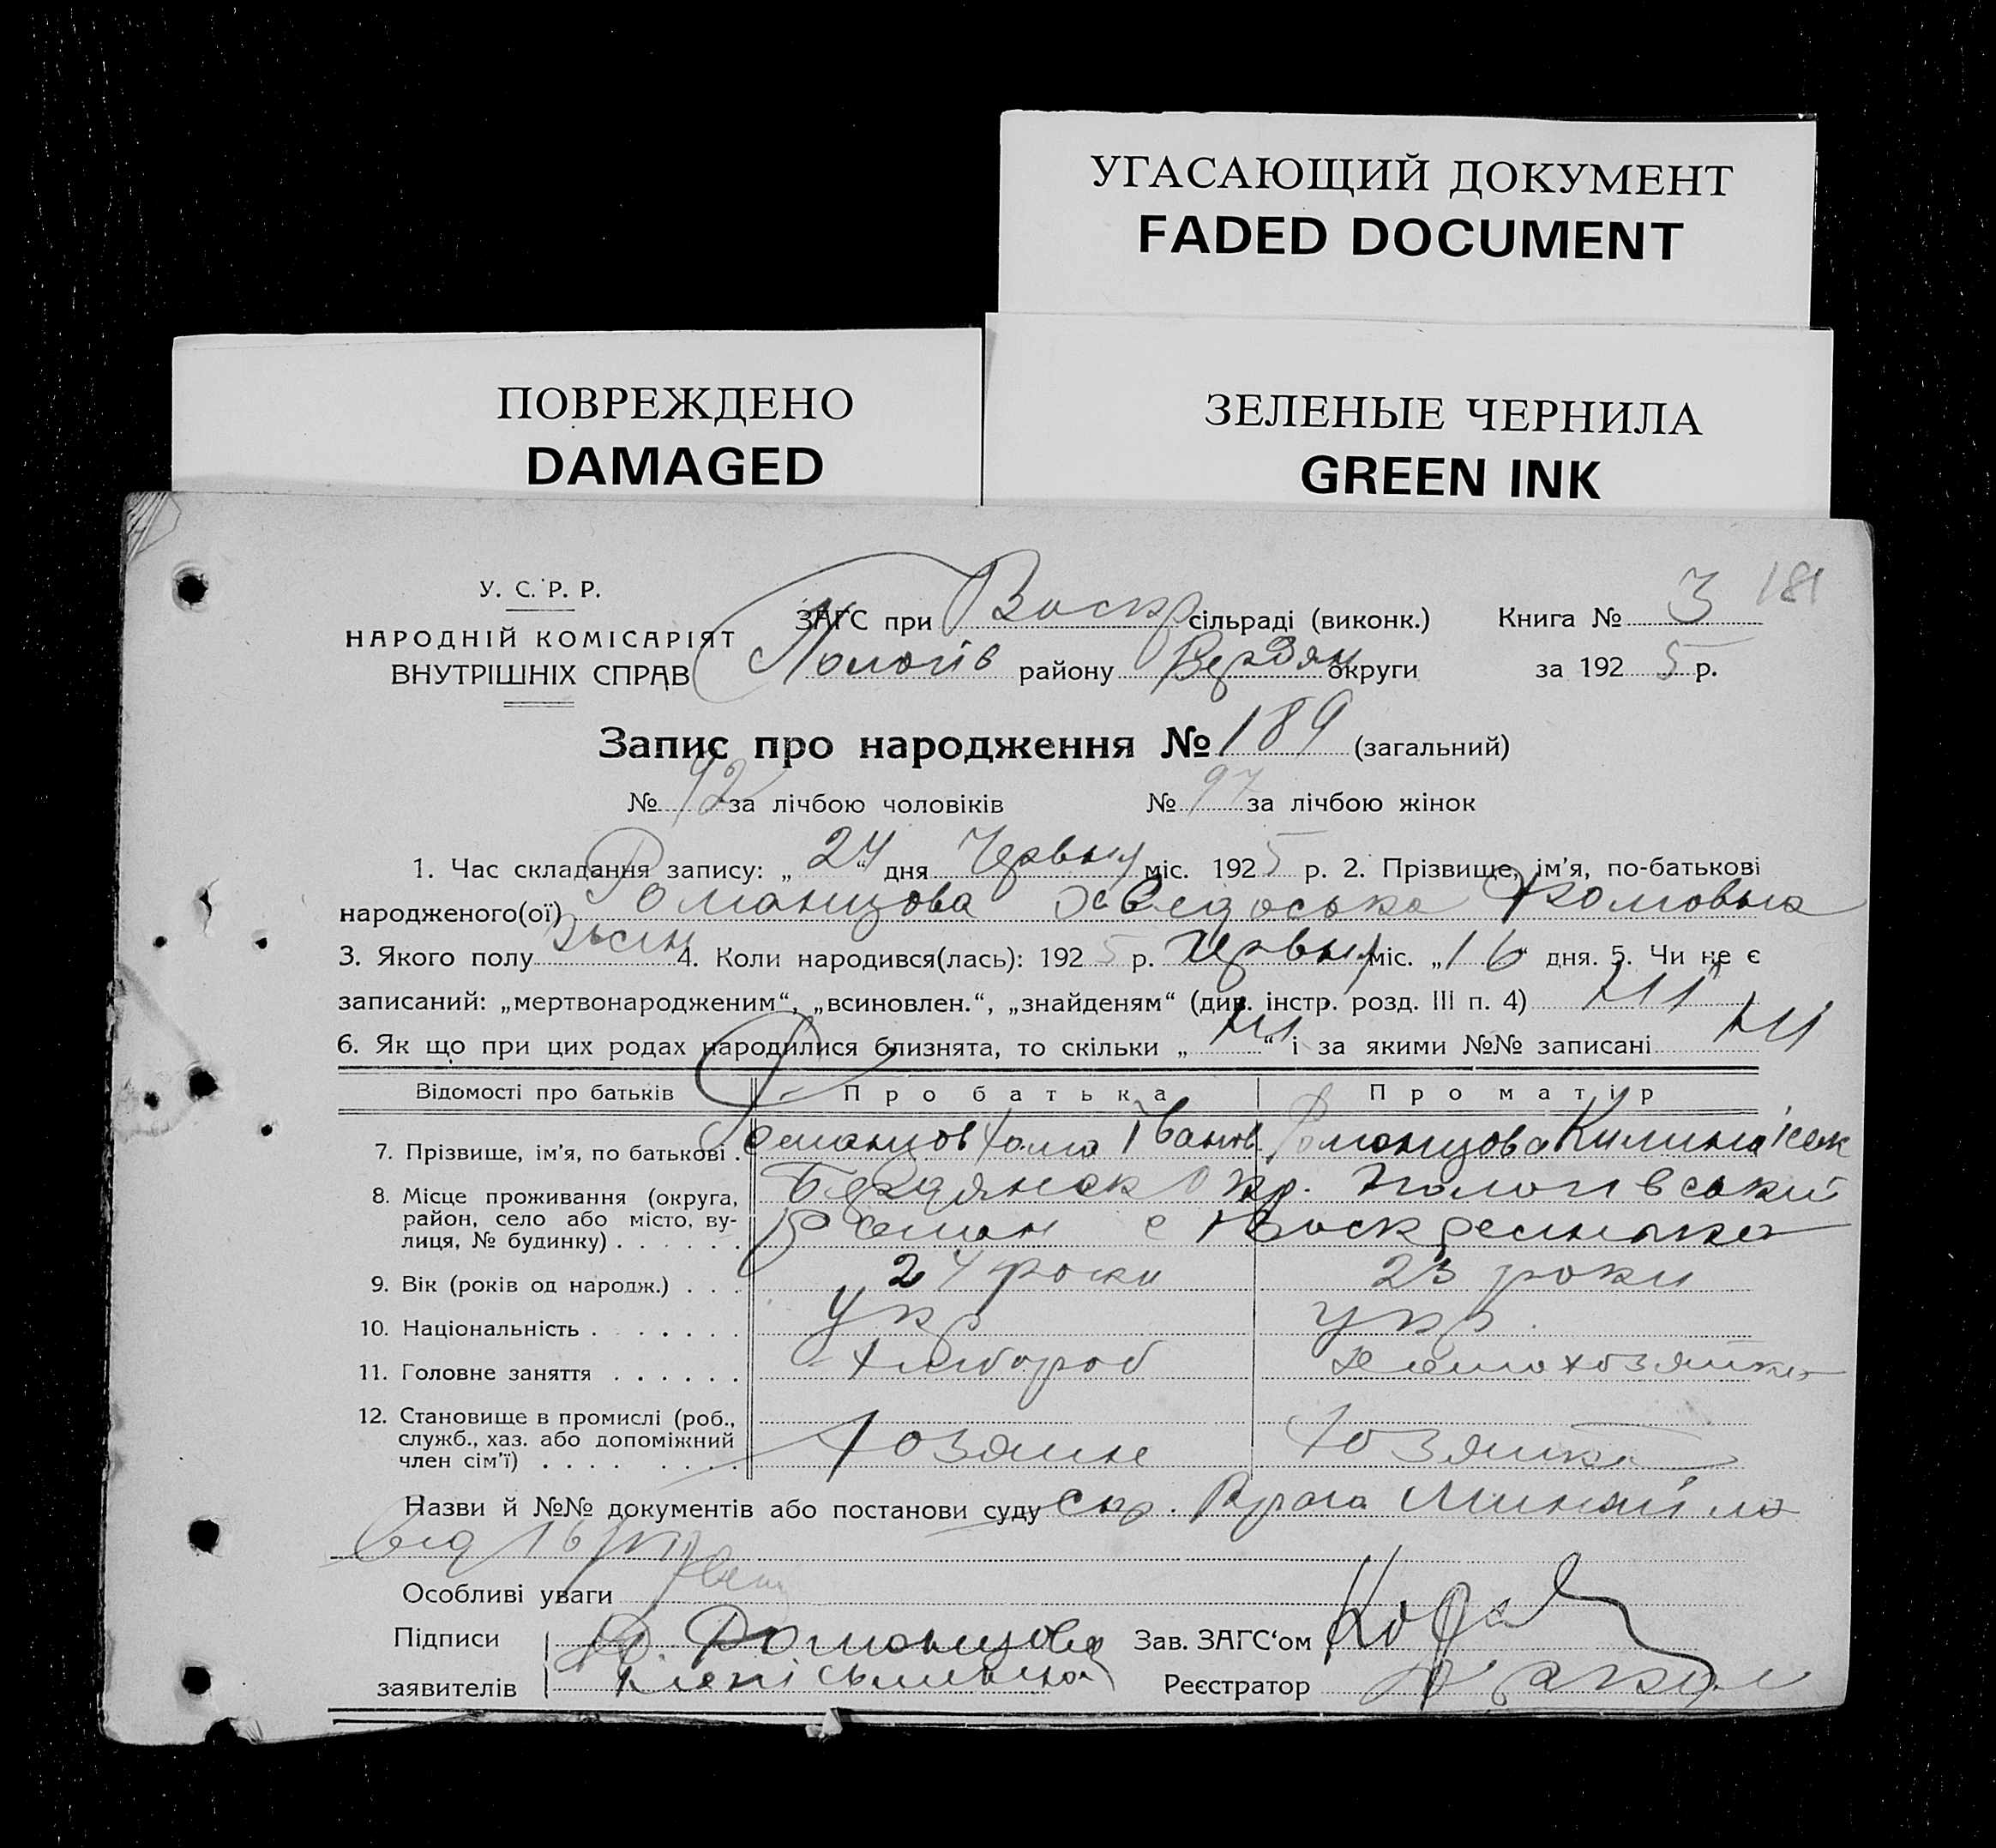 УГАСАЮЩИЙ ДОКУМЕНТ
FADED DOCUMENT
ПОВРЕЖДЕНО
DAMAGED
ЗЕЛЕНЫЕ ЧЕРНИЛА
GREEN INK
У. С. Р. Р.
НАРОДНІЙ КОМІСАРІЯТ
ВНУТРІШНІХ СПРАВ
181
ЗАГС при Воскр сільраді (виконк.) Книга № 3
Пологів району Бердян округи за 1925 р.
Запис про народження № 189 (загальний)
№ 92 за лічбою чоловіків № 97 за лічбою жінок
1. Час складання запису: „24“ дня Червня міс. 1925 р. 2. Прізвище, ім’я, по-батькові
народженого(ої) Романцова Хведоська Хомовна
3. Якого полу жін 4. Коли народився(лась): 1925 р. Червня міс. „16“ дня. 5. Чи не є
записаний: „мертвонародженим“, „всиновлен.“, „знайденям“ (див. інстр. розд. III п. 4) ні
6. Як що при цих родах народилися близнята, то скільки „ні“ і за якими №№ записані ні
Відомості про батьків Про батька Про матір
7. Прізвище, ім’я, по батькові . Романцов Хома Іванов Романцова Килина
8. Місце проживання (округа, район, село або місто, вулиця, № будинку) . . . . . . Бердянск Окр. Пологівський
Район с Воскресенка
9. Вік (років од народж.) . . . 24 роки 23 роки
10. Національність . . . . . . . укр укр.
11. Головне заняття . . . . . . Хлібороб домохозяйка
12. Становище в промислі (роб., служб., хаз. або допоміжний член сім’ї) . . . . . . . . Хозяин Хозяйка
Назви й №№ документів або постанови суду
від 16/VI
Особливі уваги
Підписи Романцова Зав. ЗАГС‘ом
заявителів Реєстратор